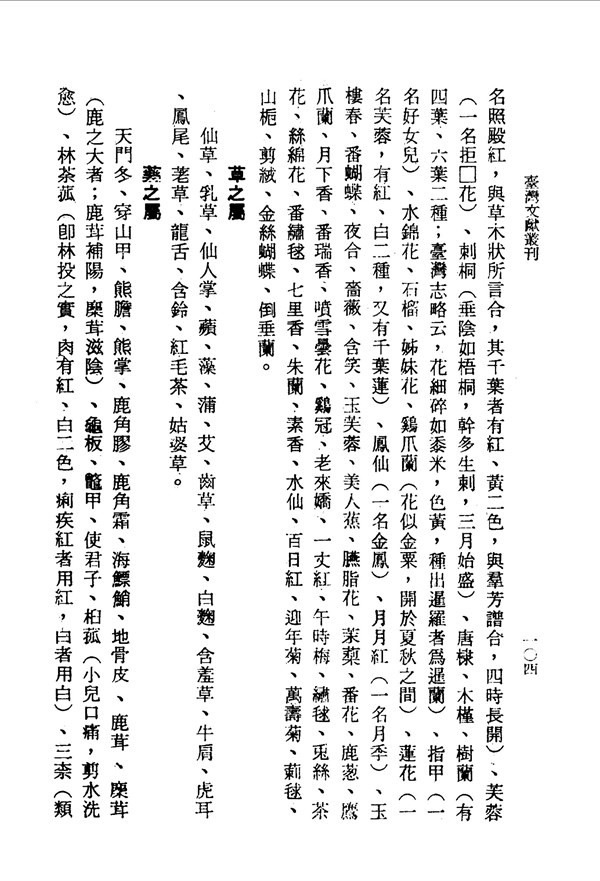 臺灣文獻叢刊
一〇四
名照殿紅，與草木狀所言合，其千葉者有紅、黃二色，與羣芳譜合，四時長開）、芙蓉
（一名拒□花）、刺桐（垂陰如梧桐，幹多生刺，三月始盛）、唐棣、木槿、樹蘭（有
四葉、六葉二種；臺灣志略云，花細碎如黍米，色黃，種出暹羅者爲暹蘭）、指甲（一
名好女兒）、水錦花、石榴、姊妹花、鷄爪蘭（花似金粟，開於夏秋之間）、蓮花（一
名芙蓉，有紅、白二種，又有千葉蓮）、鳳仙（一名金鳳）、月月紅（一名月季）、玉
樓春、番蝴蝶、夜合、薔薇、含笑、玉芙蓉、美人蕉、臙脂花、茉藜、番花、鹿葱、鷹
爪蘭、月下香、番瑞香、噴雪曇花、鷄冠、老來嬌、一丈紅、午時梅、繡毬、兎絲、茶
花、絲綿花、番繡毬、七里香、朱蘭、素香、水仙、百日紅、迎年菊、萬壽菊、莿毬、
山梔、剪絨、金絲蝴蝶、倒垂蘭。
草之屬
仙草、乳草、仙人掌、蘋、藻、蒲、艾、齒草、鼠麴、白麴、含羞草、牛肩、虎耳
、鳳尾、荖草、龍舌、含鈴、紅毛茶、姑婆草。
藥之屬
天門冬、穿山甲、熊膽、熊掌、鹿角膠、鹿角霜、海鏢鮹、地骨皮、鹿茸、麋茸
（鹿之大者；鹿茸補陽，麋茸滋陰）、龜板、鼈甲、使君子、柏菰（小兒口痛，剪水洗
愈）、林荼菰（卽林投之實，肉有紅、白二色，痢疾紅者用紅，白者用白）、三柰（類